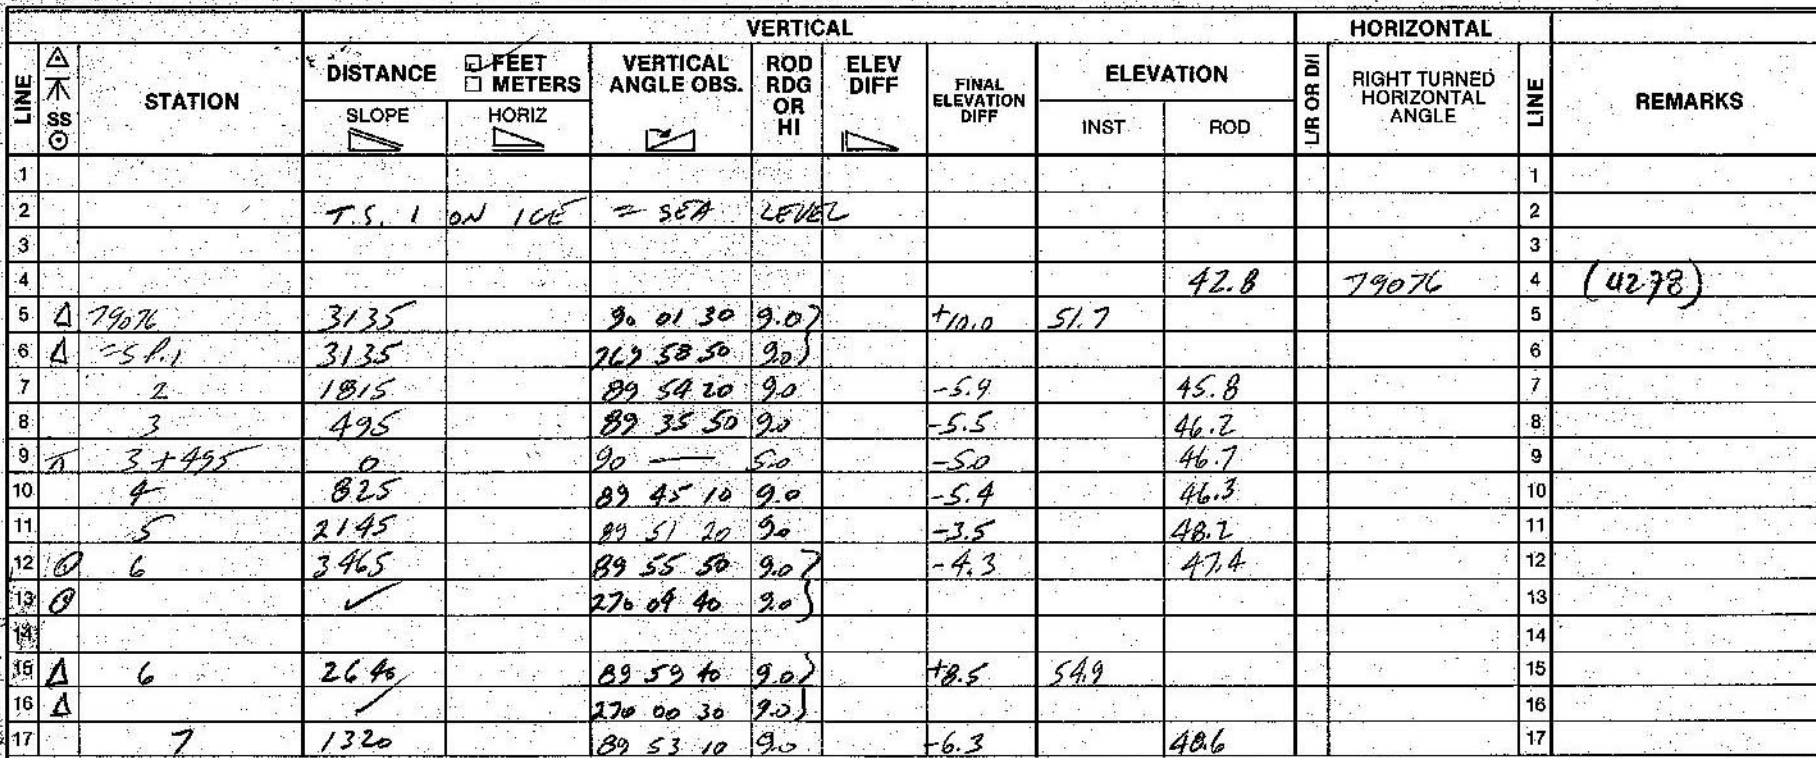 VERTICAL HORIZONTAL
LINE SS STATION DISTANCE FEET METERS SLOPE HORIZ VERTICAL ANGLE OBS. ROD RDG OR HI ELEV DIFF FINAL ELEVATION DIFF ELEVATION INST ROD L/R OR D/I RIGHT TURNED HORIZONTAL ANGLE LINE REMARKS
1 1
2 T.S. 1 ON ICE = SEA LEVEL 2
3 3
4 42.8 79076 4 (4278)
5 Δ 79076 3135 90 01 30 9.0 +10.0 51.7 5
6 Δ = S P. 1 3135 269 58 50 9.0 6
7 2 1815 89 54 20 9.0 -5.9 45.8 7
8 3 495 89 35 50 9.0 -5.5 46.2 8
9 3 + 495 0 90 — 5.0 -5.0 46.7 9
10 4 825 89 45 10 9.0 -5.4 46.3 10
11 5 2145 89 51 20 9.0 -3.5 48.2 11
12 6 3465 89 55 50 9.0 -4.3 47.4 12
13 ✓ 270 04 40 9.0 13
14 14
15 Δ 6 2640 89 59 40 9.0 +8.5 54.9 15
16 Δ ✓ 270 00 30 9.0 16
17 7 1320 89 53 10 9.0 -6.3 48.6 17